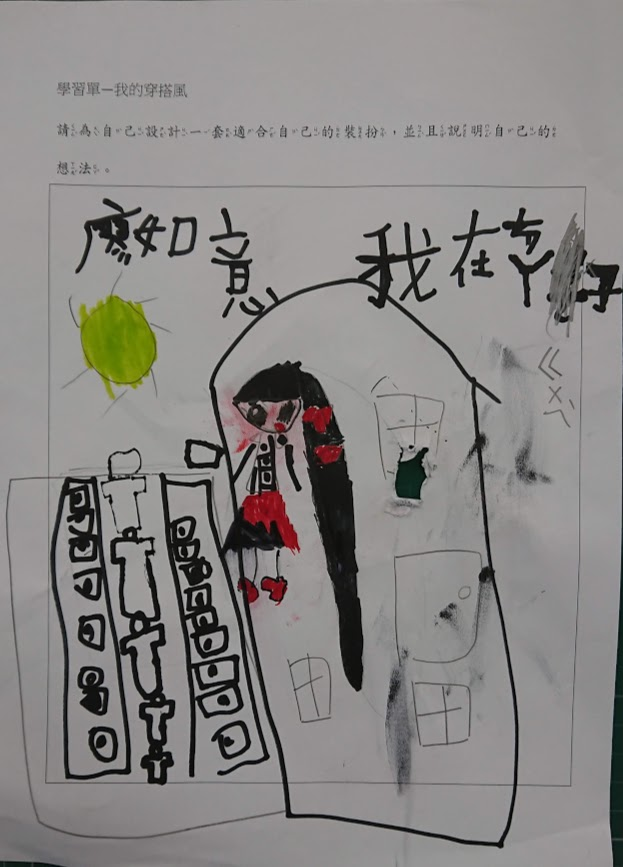 學習單—我的穿搭風
請為自己設計一套適合自己的裝扮，並且說明自己的
想法。
廖如意
我在